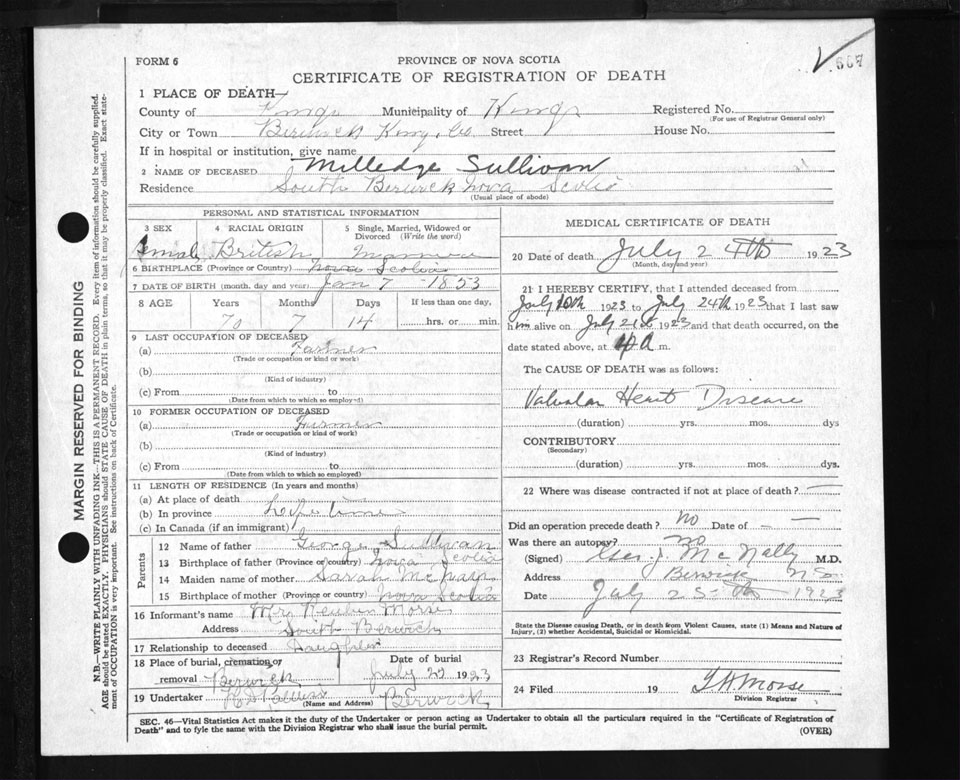 FORM 6
PROVINCE OF NOVA SCOTIA
CERTIFICATE OF REGISTRATION OF DEATH
607
1 PLACE OF DEATH—
County of Kings Municipality of Kings Registered No.
(For use of Registrar General only)
City or Town Berwick Kings Co. Street House No.
If in hospital or institution, give name
2 NAME OF DECEASED Milledge Sullivan
Residence South Berwick Nova Scotia
(Usual place of abode)
PERSONAL AND STATISTICAL INFORMATION
3 SEX 4 RACIAL ORIGIN 5 Single, Married, Widowed or Divorced (Write the word)
British
6 BIRTHPLACE (Province or Country) Nova Scotia
7 DATE OF BIRTH (month, day and year) Jan 7 - 1853
8 AGE Years Months Days If less than one day,
70 7 14 hrs. or min.
9 LAST OCCUPATION OF DECEASED
(a) Farmer
(Trade or occupation or kind or work)
(b)
(Kind of industry)
(c) From to
(Date from which to which so employed)
10 FORMER OCCUPATION OF DECEASED
(a) Farmer
(Trade or occupation or kind of work)
(b)
(Kind of industry)
(c) From to
(Date from which to which so employed)
11 LENGTH OF RESIDENCE (In years and months)
(a) At place of death
(b) In province Life time
(c) In Canada (if an immigrant)
Parents
12 Name of father George Sullivan
13 Birthplace of father (Province or country) Nova Scotia
14 Maiden name of mother Sarah
15 Birthplace of mother (Province or country) Nova Scotia
16 Informant's name Mrs Reuben Morse
Address South Berwick
17 Relationship to deceased Daughter
18 Place of burial, cremation or removal Berwick Date of burial July 1923
19 Undertaker Berwick
(Name and Address)
MEDICAL CERTIFICATE OF DEATH
20 Date of death July 24th 1923
(Month, day and year)
21 I HEREBY CERTIFY, that I attended deceased from
July 10th 1923 to July 24th 1923 that I last saw
him alive on July 21st 1923 and that death occurred, on the
date stated above, at 4 A m.
The CAUSE OF DEATH was as follows:
Valvular Heart Disease
(duration) yrs. mos. dys
CONTRIBUTORY
(Secondary)
(duration) yrs. mos. dys.
22 Where was disease contracted if not at place of death? —
Did an operation precede death? no Date of — —
Was there an autopsy? no
(Signed) Geo. J. McNally M.D.
Address Berwick N.S.
Date July 25th 1923
State the Disease causing Death, or in death from Violent Causes, state (1) Means and Nature of
Injury, (2) whether Accidental, Suicidal or Homicidal.
23 Registrar's Record Number
24 Filed 19 Morse
Division Registrar
SEC. 46—Vital Statistics Act makes it the duty of the Undertaker or person acting as Undertaker to obtain all the particulars required in the "Certificate of Registration of
Death" and to fyle the same with the Division Registrar who shall issue the burial permit. (OVER)
MARGIN RESERVED FOR BINDING
N.B.—WRITE PLAINLY WITH UNFADING INK—THIS IS A PERMANENT RECORD. Every item of information should be carefully supplied.
AGE should be stated EXACTLY. PHYSICIANS should STATE CAUSE OF DEATH in plain terms, so that it may be properly classified. Exact state-
ment of OCCUPATION is very important. See instructions on back of Certificate.